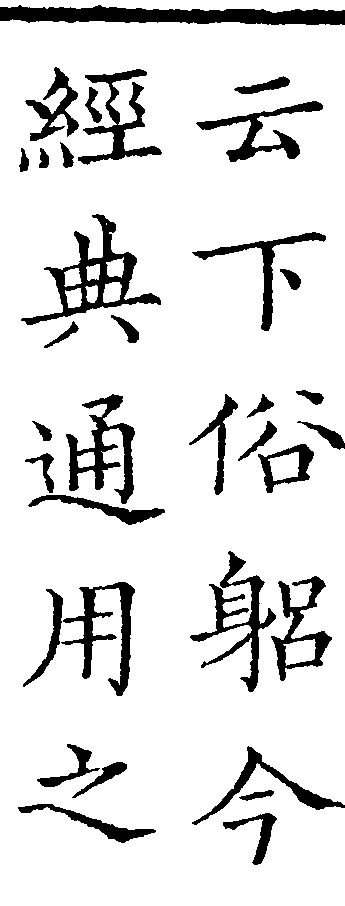 云下俗躳今
經典通用之